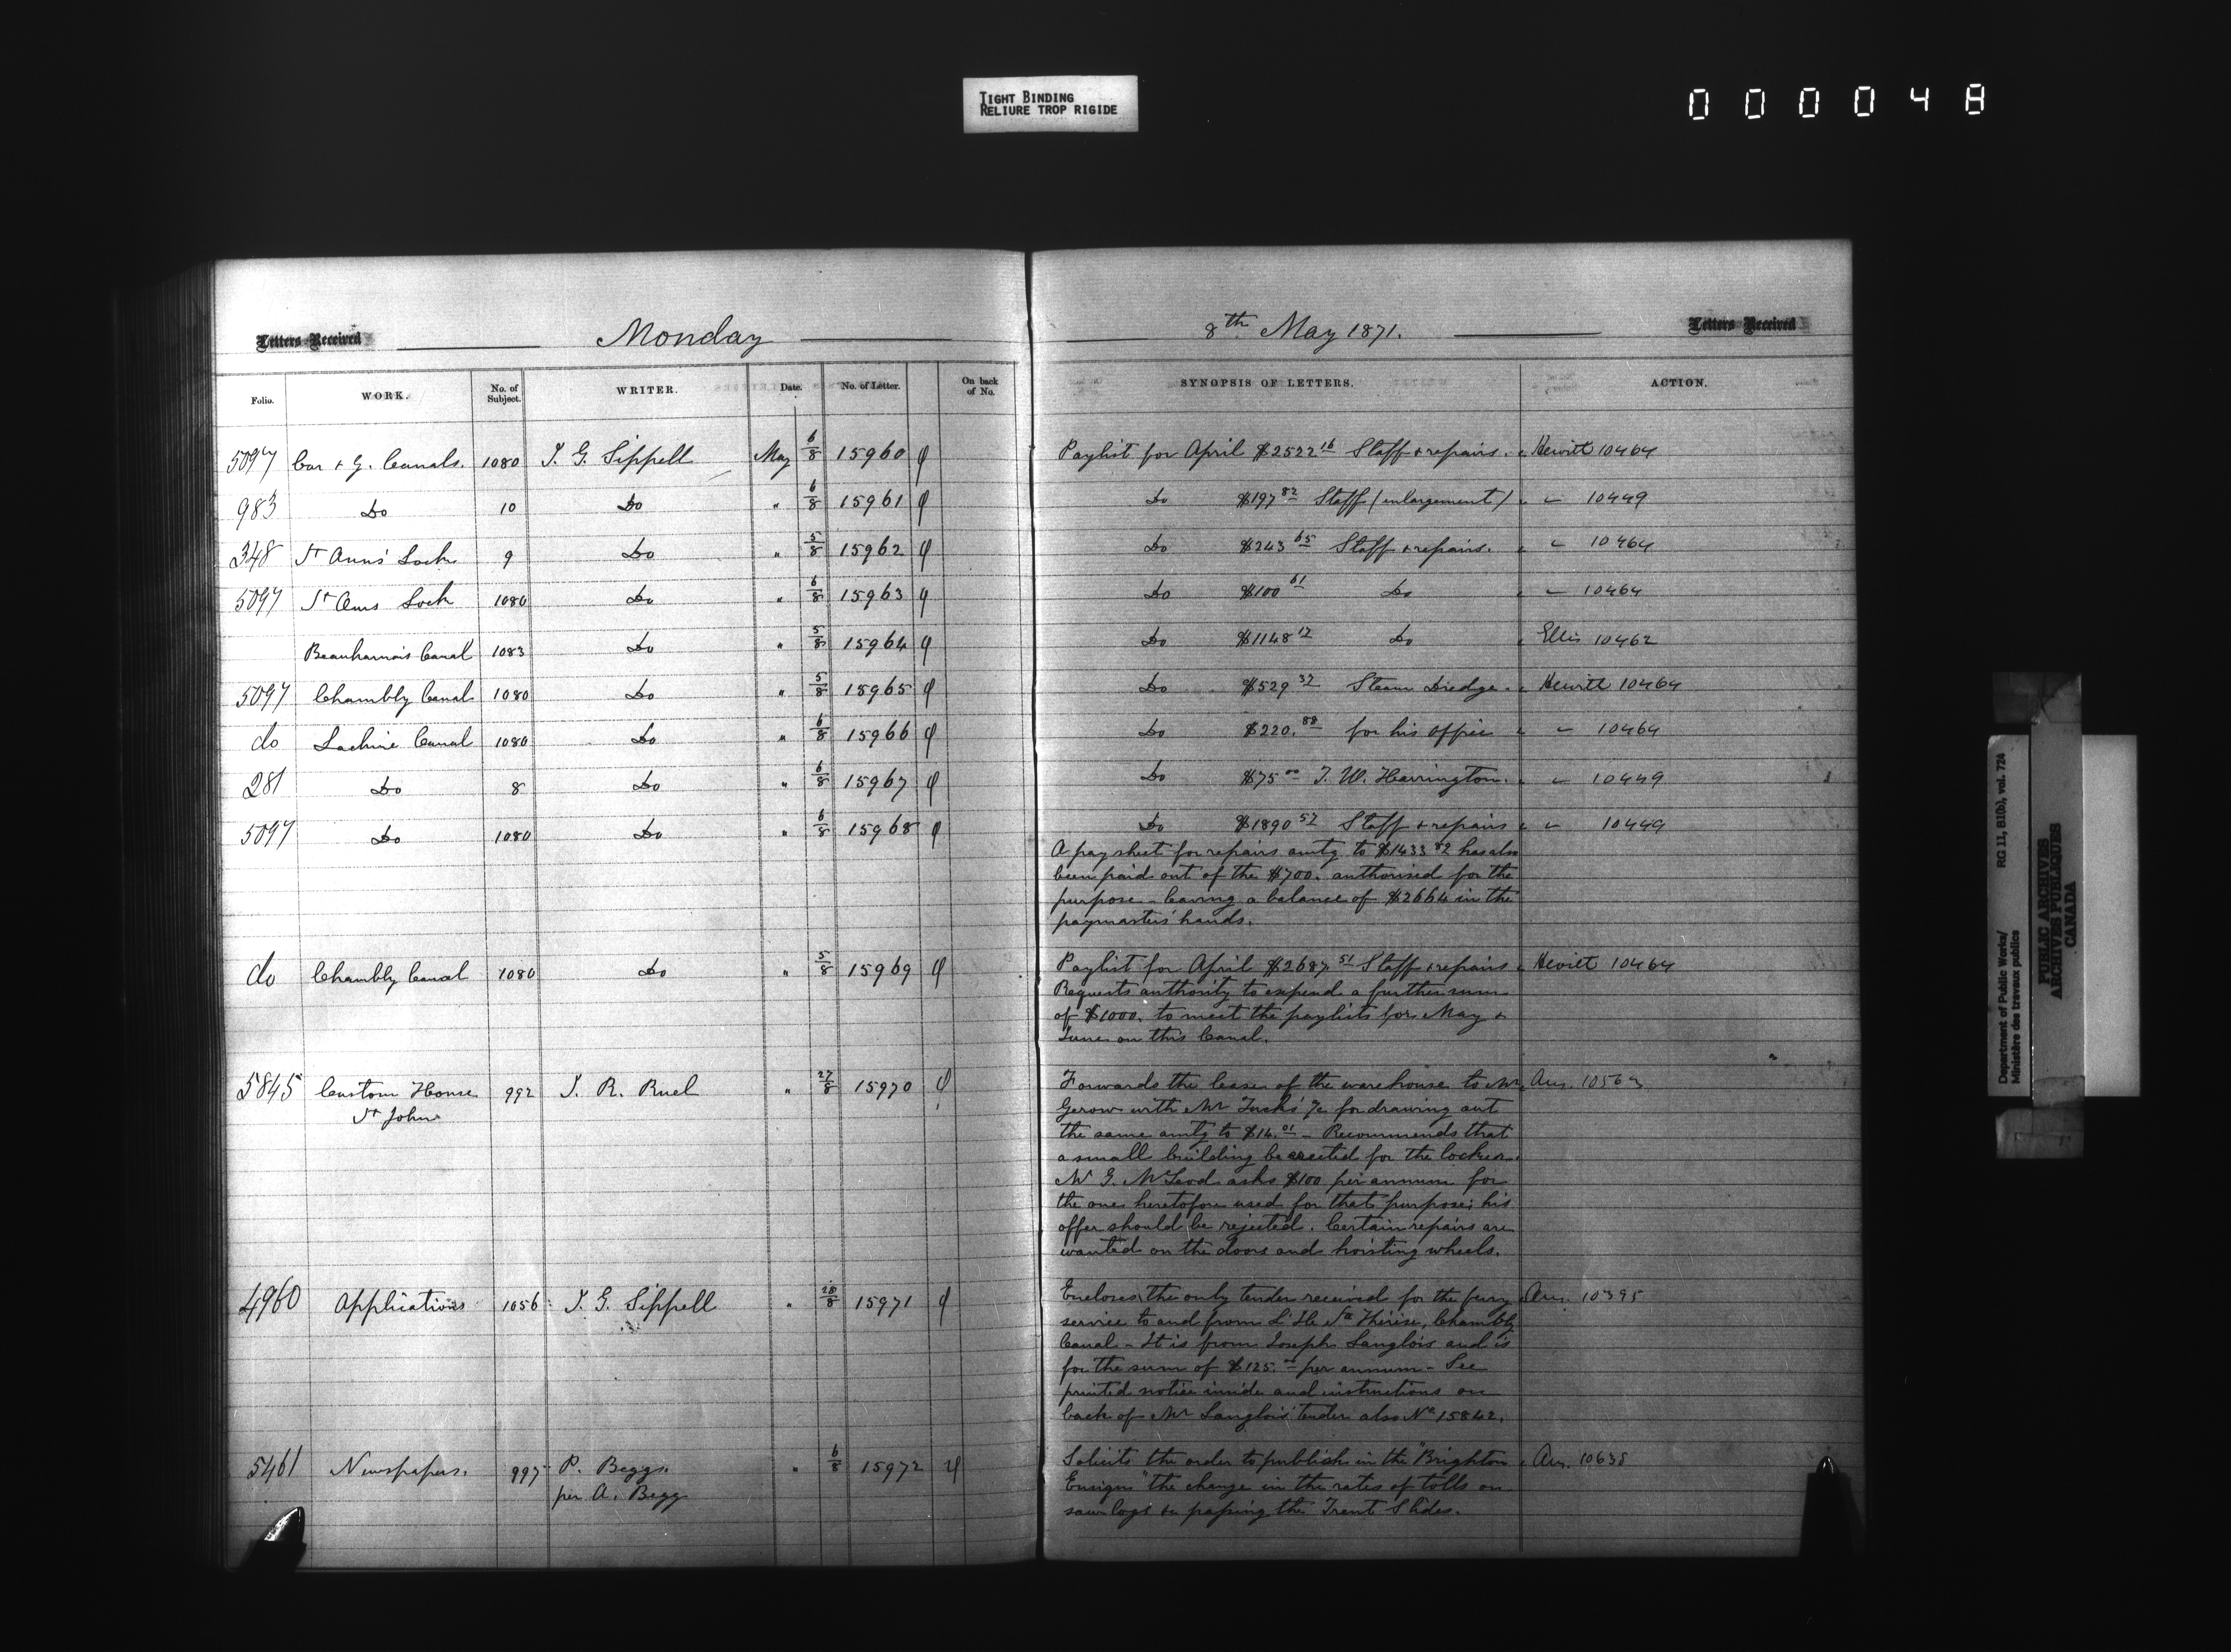 TIGHT BINDING
RELIURE TROP RIGIDE
000048
Letters Received Monday
8th May 1871. Letters Received
Folio. WORK. No. of Subject. WRITER. Date. No. of Letter. On back of No. SYNOPSIS OF LETTERS. ACTION.
5097 Car & G. Canals. 1080 J. G. Sippell May 6/8 15960 Paylist for April $2522 16 Staff & repairs. Hewitt 10464
983 Do 10 Do " 6/8 15961 Do $197 82 Staff (enlargement) " 10449
348 St Anns' Lock 9 Do " 5/8 15962 Do $243 65 Staff & repairs. " 10464
5097 St Anns Lock 1080 Do " 6/8 15963 Do $100 61 Do " 10464
Beauharnois Canal 1083 Do " 5/8 15964 Do $1148 12 Do Ellis 10462
5097 Chambly Canal 1080 Do " 5/8 15965 Do $529 37 Steam Dredge. Hewitt 10464
do Lachine Canal 1080 Do " 6/8 15966 Do $220. 88 for his office " 10464
281 Do 8 Do " 6/8 15967 Do $75 00 J. W. Harrington. " 10449
5097 Do 1080 Do " 6/8 15968 Do $1890 57 Staff & repairs " 10449
A pay sheet for repairs amtg to $1433 82 has also
been paid out of the $700. authorised for the
purpose - leaving a balance of $2664 in the
paymasters' hands.
do Chambly Canal 1080 Do " 5/8 15969 Paylist for April $2687. 51 Staff & repairs Hewitt 10464
Requests authority to expend a further sum
of $1000. to meet the paylists for May &
June on this Canal.
5845 Custom House 992 J. R. Ruel " 27/8 15970 Forwards the lease of the warehouse to Mr Ans.
St John
Gerow with Mr Tuck's a/c for drawing out
the same amtg to $14. 01 - Recommends that
a small building be erected for the lockers.
Mr G. McLeod asks $100 per annum for
the one heretofore used for that purpose; his
offer should be rejected. Certain repairs are
wanted on the doors and hoisting wheels.
4960 Applications 1056 J. G. Sippell " 28/8 15971 Encloses the only tender received for the ferry Ans. 10395
service to and from L'Ile Ste Thérèse, Chambly
Canal - It is from Joseph Langlois and is
for the sum of $125. 00 per annum - See
printed notice inside and instructions on
back of Mr Langlois' tender also No 15842.
5461 Newspapers. 997 P. Beggs. " 6/8 15972 Solicits the order to publish in the "Brighton Ans. 10638
per A. Begg
Ensign" the change in the rates of tolls on
saw logs &c passing the Trent Slides.
Department of Public Works/ RG 11, B1(b), vol. 724
Ministère des travaux publics
PUBLIC ARCHIVES
ARCHIVES PUBLIQUES
CANADA